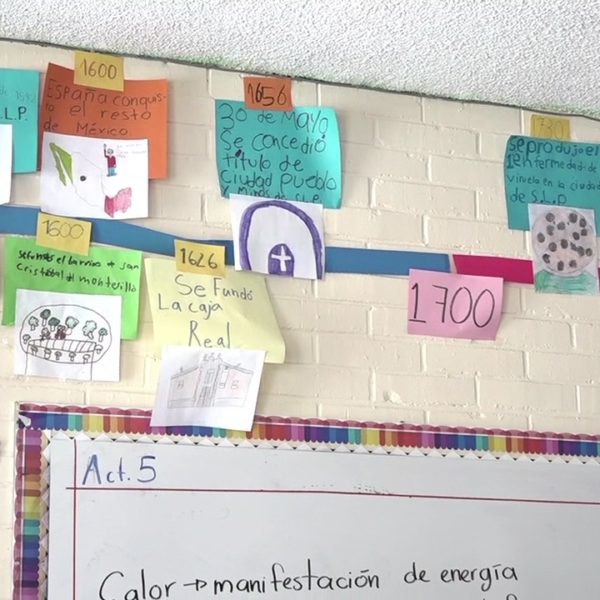 de 1592
S.L.P.
1600
ESPAÑA conquis-
to el resto
de México
1656
30 de Mayo
Se concedio
titulo de
ciudad Pueblo
y Minas de S.L.P
1730
Se produjo el
1 enfermedad de
viruela en la ciudad
de S.L.P
1600
el barrio
San
Cristobal del montecillo
1626
Se Fundó
La caja
Real
1700
Act. 5
Calor → manifestación de energía